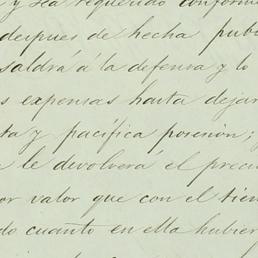 y sea requerido conforme
despues de hecha pub
saldrá á la defensa y lo
s expensas hasta dejar
ta y pacífica posesion; y
le devolverá el preci
or valor que con el tiem
do cuanto en ella hubier